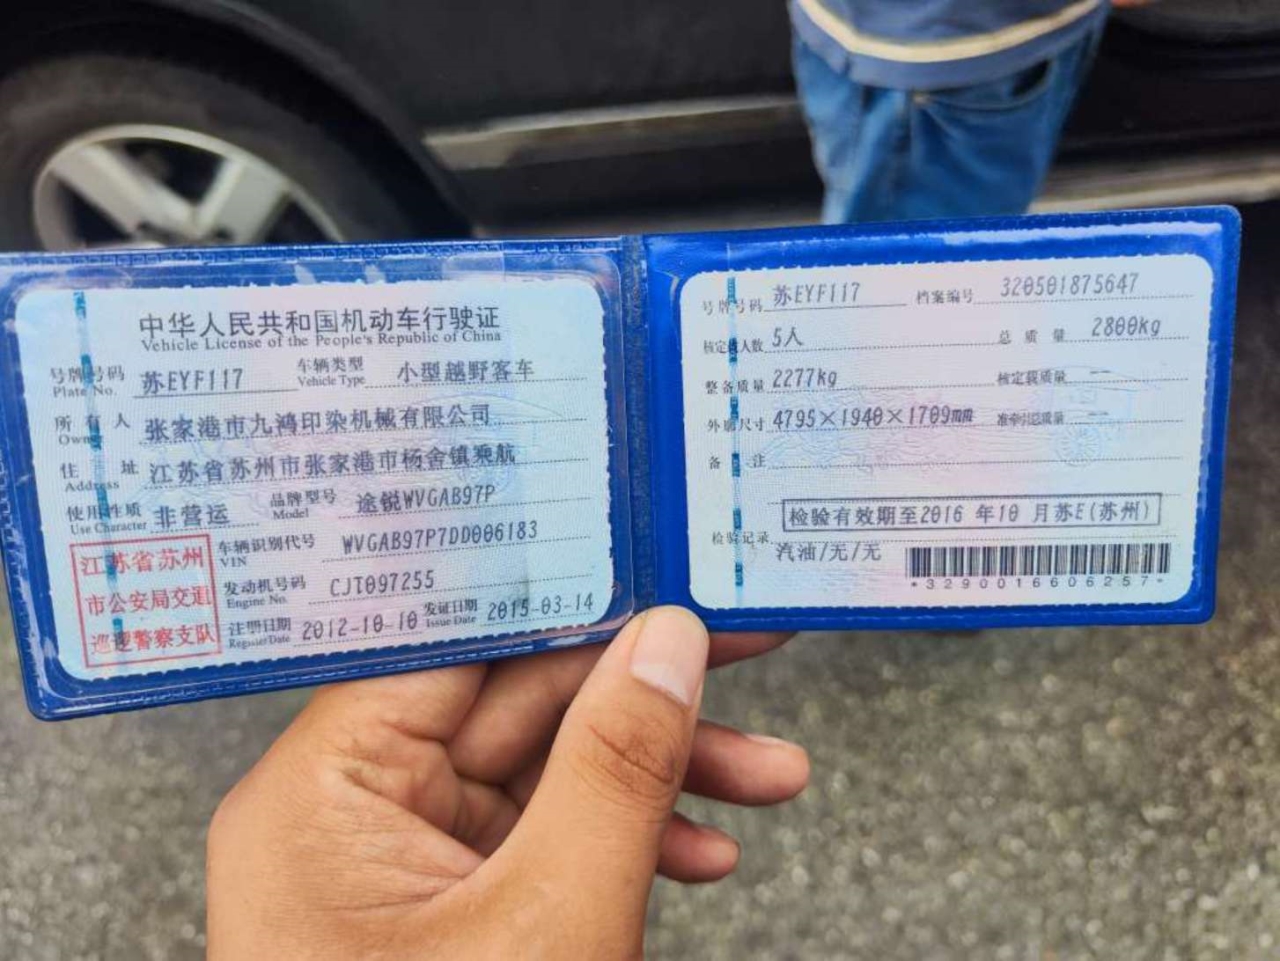 中华人民共和国机动车行驶证
Vehicle License of the People's Republic of China
号牌号码 苏EYF117 车辆类型 小型越野客车
Plate No. Vehicle Type
所有人 张家港市九鸿印染机械有限公司
Owner
住址 江苏省苏州市张家港市杨舍镇乘航
Address
使用性质 非营运 品牌型号 途锐WVGAB97P
Use Character Model
江苏省苏州
市公安局交通
巡逻警察支队
车辆识别代号 WVGAB97P7DD006183
VIN
发动机号码 CJT097255
Engine No.
注册日期 2012-10-10 发证日期 2015-03-14
Register Date Issue Date
号牌号码 苏EYF117 档案编号 320501875647
核定载人数 5人 总质量 2800kg
整备质量 2277kg 核定载质量 --
外廓尺寸 4795×1940×1709mm 准牵引总质量 --
备注
检验有效期至2016 年10 月苏E(苏州)
检验记录
汽油/无/无
*3290016606257*